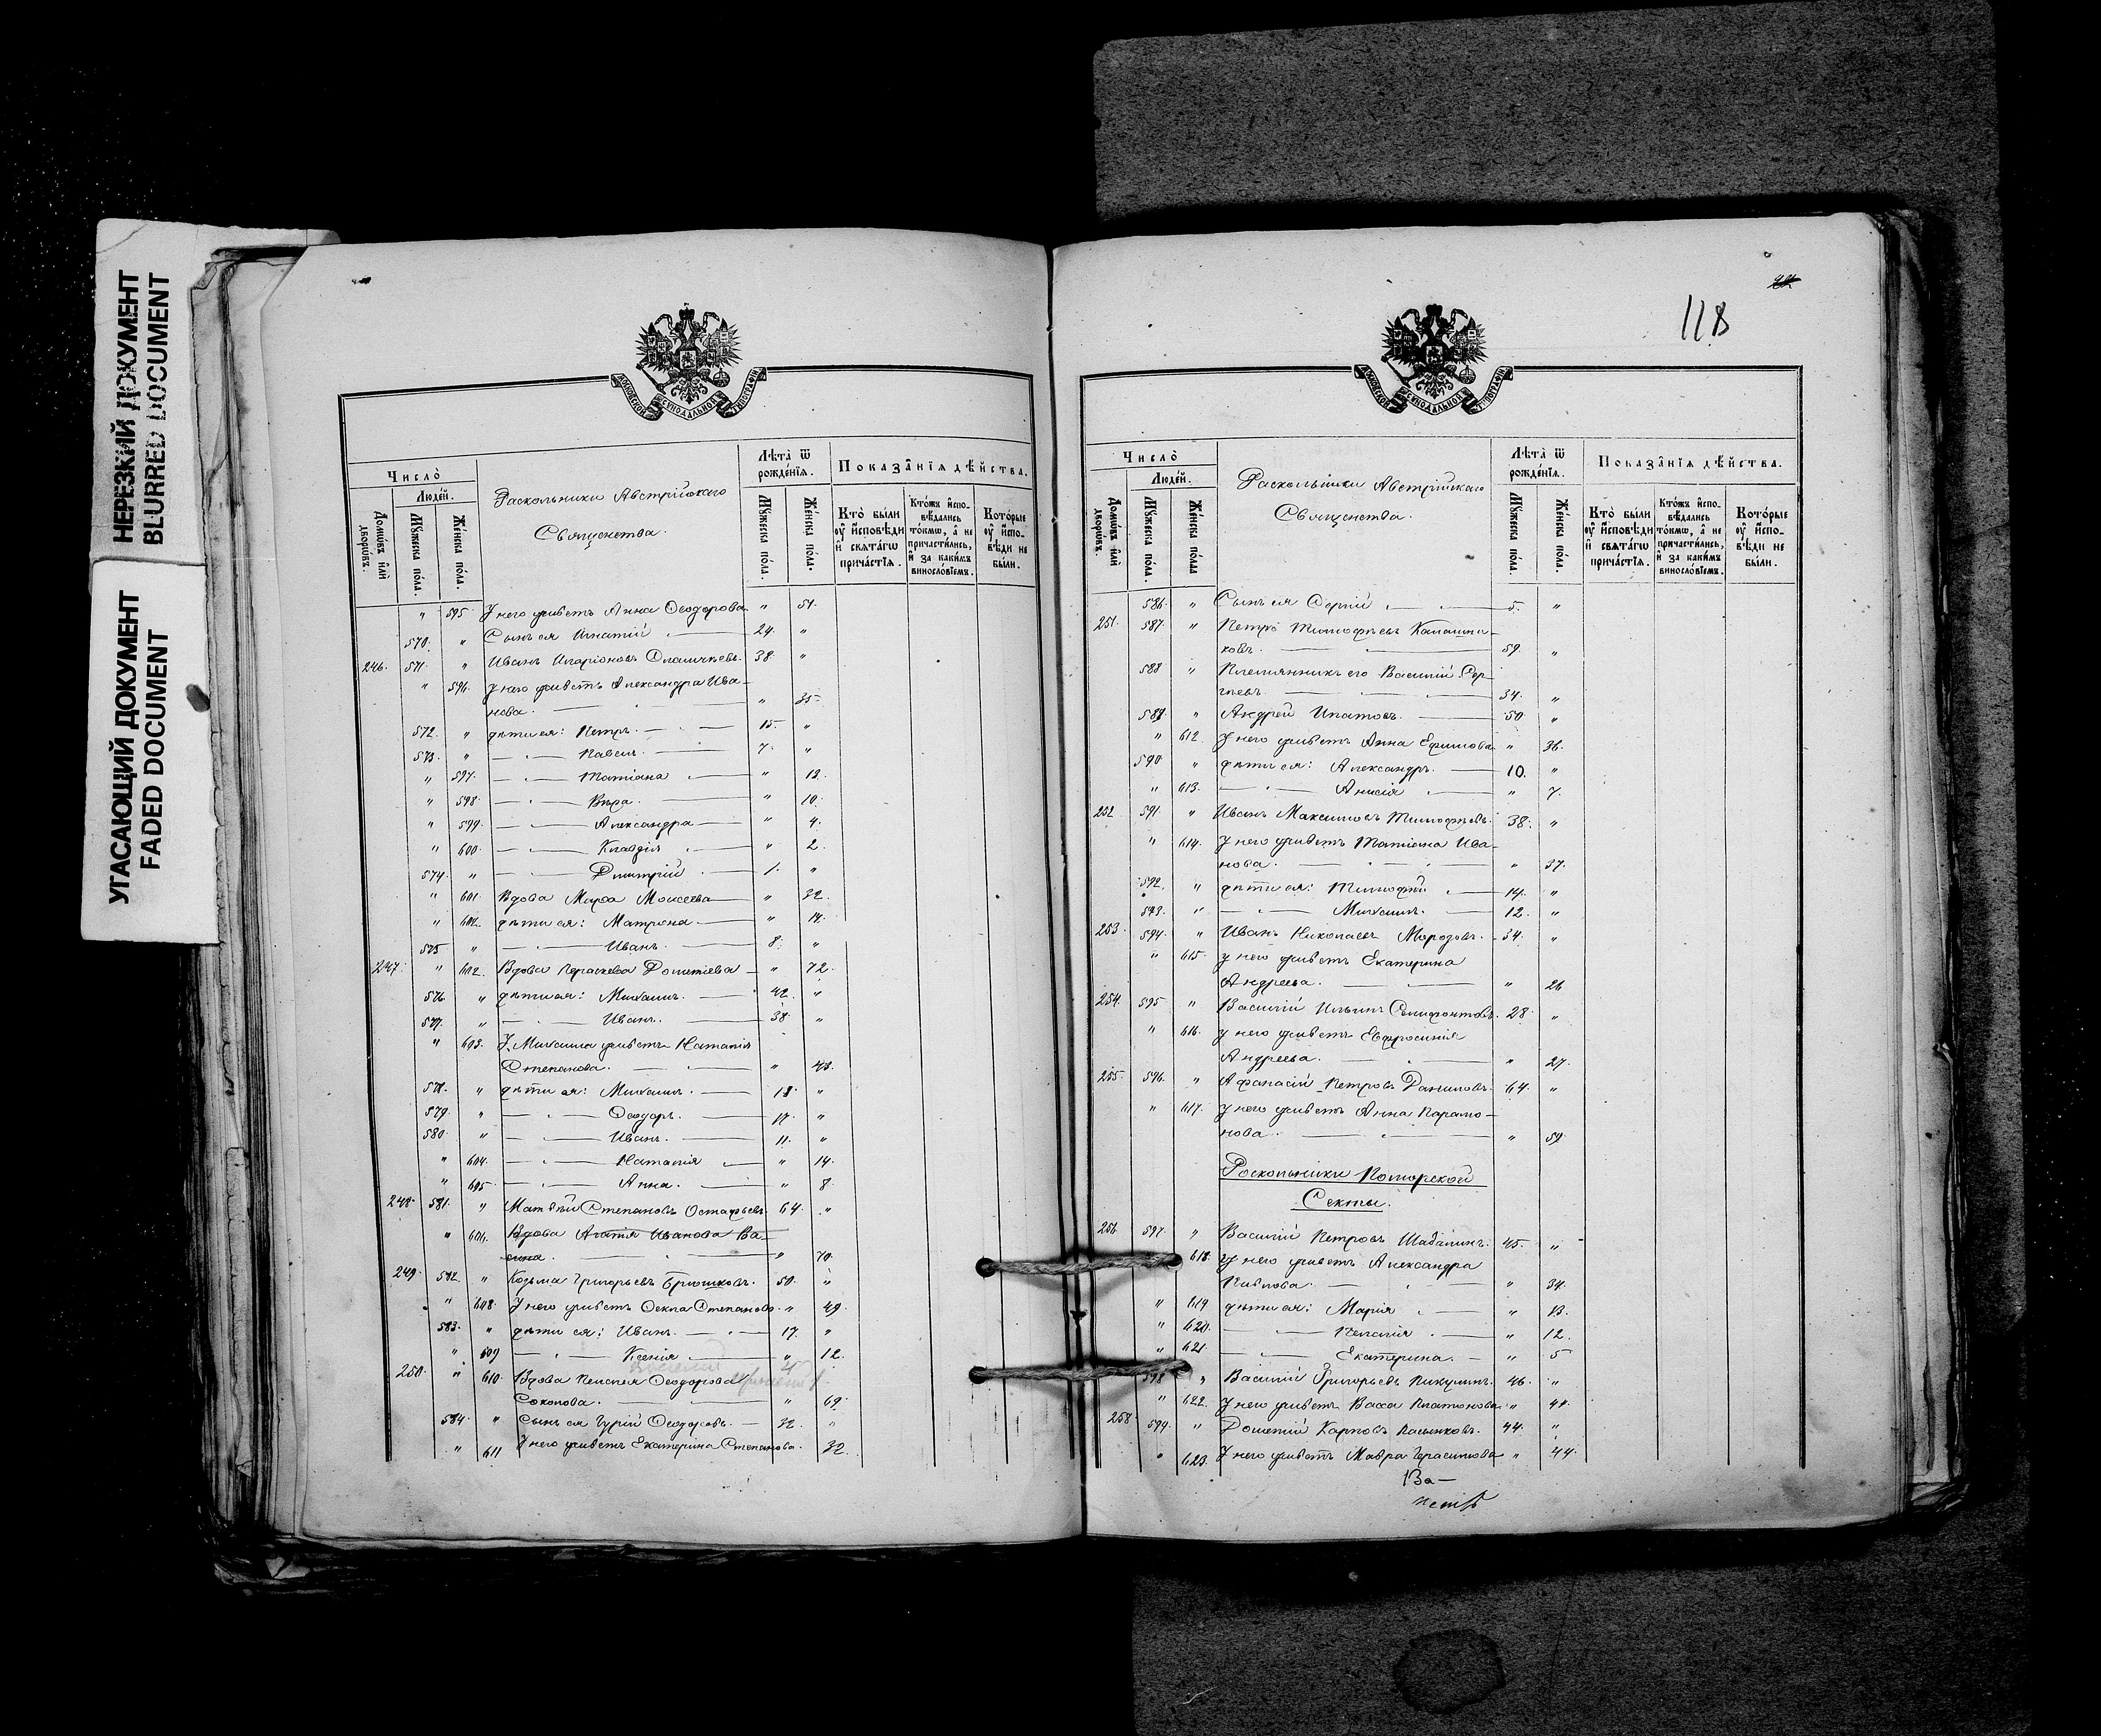 НЕРЕЗКИЙ ДОКУМЕНТ
BLURRED DOCUMENT
УГАСАЮЩИЙ ДОКУМЕНТ
FADED DOCUMENT
МОСКОВСКОЙ СѴНОДАЛЬНОЙ ТИПОГРАФІИ
Число̀
Люде́й.
Домѡ́въ и҆лѝ дворѡ́въ.
Мꙋ́жеска по́ла.
Же́нска по́ла.
Раскольники Австрійскаго
Священства.
Лѣта̀ ѿ рожде́нїѧ.
Мꙋ́жеска по́ла.
Же́нска по́ла.
Показа̑нїѧ дѣ́йства.
Кто̀ бы́ли оу҆ и҆сповѣди и҆ свѧта́гѡ прича́стїѧ.
Кто́жъ и҆спо-вѣдались то́кмѡ, а҆ не причасти́лись, и҆ за каки́мъ виносло́вїемъ.
Кото́рые оу҆ и҆спо-вѣди не бы́ли.
" 595 У него живетъ Анна Ѳеодорова " 51.
570. " Сынъ ея Игнатій 24. "
246. 571. " Иванъ Иларіоновъ 38. "
" 596. У него живетъ Александра Ива-
нова. " 35
572. " дѣти ея: Петръ. 15. "
573. " Павелъ. 7. "
" 597. Татіана " 12.
" 598. Вѣра. " 10.
" 599. Александра " 4.
" 600. Клавдія " 2.
574. " Дмитрій 1. "
" 601. Вдова Марѳа Моисеева " 32.
" 602. дѣти ея: Матрона " 14.
575 " Иванъ. 8. "
247. " 602. Вдова Параскева Дометіева " 72.
576 " дѣти ея: Михаилъ. 42. "
577. " Иванъ. 38. "
" 603. У Михаила живетъ Наталія
Степанова. " 40.
578. " дѣти ея: Михаилъ. 18. "
579. " Ѳеодоръ. "
580. " Иванъ. 11. "
" 604. Наталія " 14.
" 605 Анна. " 8.
248. 581. " Матвѣй Степановъ Остафьевъ 64. "
" 606. Вдова Агапія Иванова Ва-
сина. " 70.
249. 582. " Козьма Григорьевъ Брюшковъ. 50. "
" 608. У него живетъ Ѳекла Степанова. " 49.
583. " дѣти ея: Иванъ. 17. "
" 609 Ксенія " 12.
250. " 610. Вдова Пелагея Ѳеодорова
Соколова. " 69.
584. " Сынъ ея Гурій Ѳеодоровъ. 32. "
" 611 У него живетъ Екатерина Степанова. 32.
118
МОСКОВСКОЙ СѴНОДАЛЬНОЙ ТИПОГРАФІИ
Число̀
Люде́й.
Домѡ́въ и҆лѝ дворѡ́въ.
Мꙋ́жеска по́ла.
Же́нска по́ла.
Раскольники Австрійскаго
Священства.
Лѣта̀ ѿ рожде́нїѧ.
Мꙋ́жеска по́ла.
Же́нска по́ла.
Показа̑нїѧ дѣ́йства.
Кто̀ бы́ли оу҆ и҆сповѣди и҆ свѧта́гѡ прича́стїѧ.
Кто́жъ и҆спо-вѣдались то́кмѡ, а҆ не причасти́лись, и҆ за каки́мъ виносло́вїемъ.
Кото́рые оу҆ и҆спо-вѣди не бы́ли.
586. " Сынъ ея Сергій 5. "
251. 587. " Петръ Тимофѣевъ Калашни-
ковъ. 59. "
588 " Племянникъ его Василій Сер-
гѣевъ. 34. "
589. " Андрей Ипатовъ. 50. "
" 612. У него живетъ Анна Ефимова " 36.
590. " дѣти ея: Александръ. 10. "
" 613. Анисія " 7.
252 591. " Иванъ Максимовъ Тимофѣевъ. 38. "
" 614. У него живетъ Татіана Ива-
нова. " 37.
592. " дѣти ея: Тимофей 14. "
593. " Михаилъ. 12. "
253. 594. " Иванъ Николаевъ Морозовъ. 34. "
" 615. У него живетъ Екатерина
Андреева. " 26
254. 595 " Василій Ильинъ Селифонтовъ. 28. "
" 616. У него живетъ Евфросинія
Андреева. " 27.
255. 596. " Афанасій Петровъ Даниловъ. 64. "
" 617. У него живетъ Анна Парамо-
нова. " 59.
Роскольники Поморской
Секты.
256. 597. " Василій Петровъ Шабалинъ. 45. "
618. У него живетъ Александра
Павлова. " 34.
" 619 дѣти ея: Марія " 13.
" 620. Пелагія " 12.
" 621. Екатерина. " 5
598 " Василій Григорьевъ Пикулинъ. 46. "
" 622. У него живетъ Васса Платонова. "
258. 599. " Дометій Карповъ 44. "
" 623. У него живетъ Мавра Герасимова " 44.